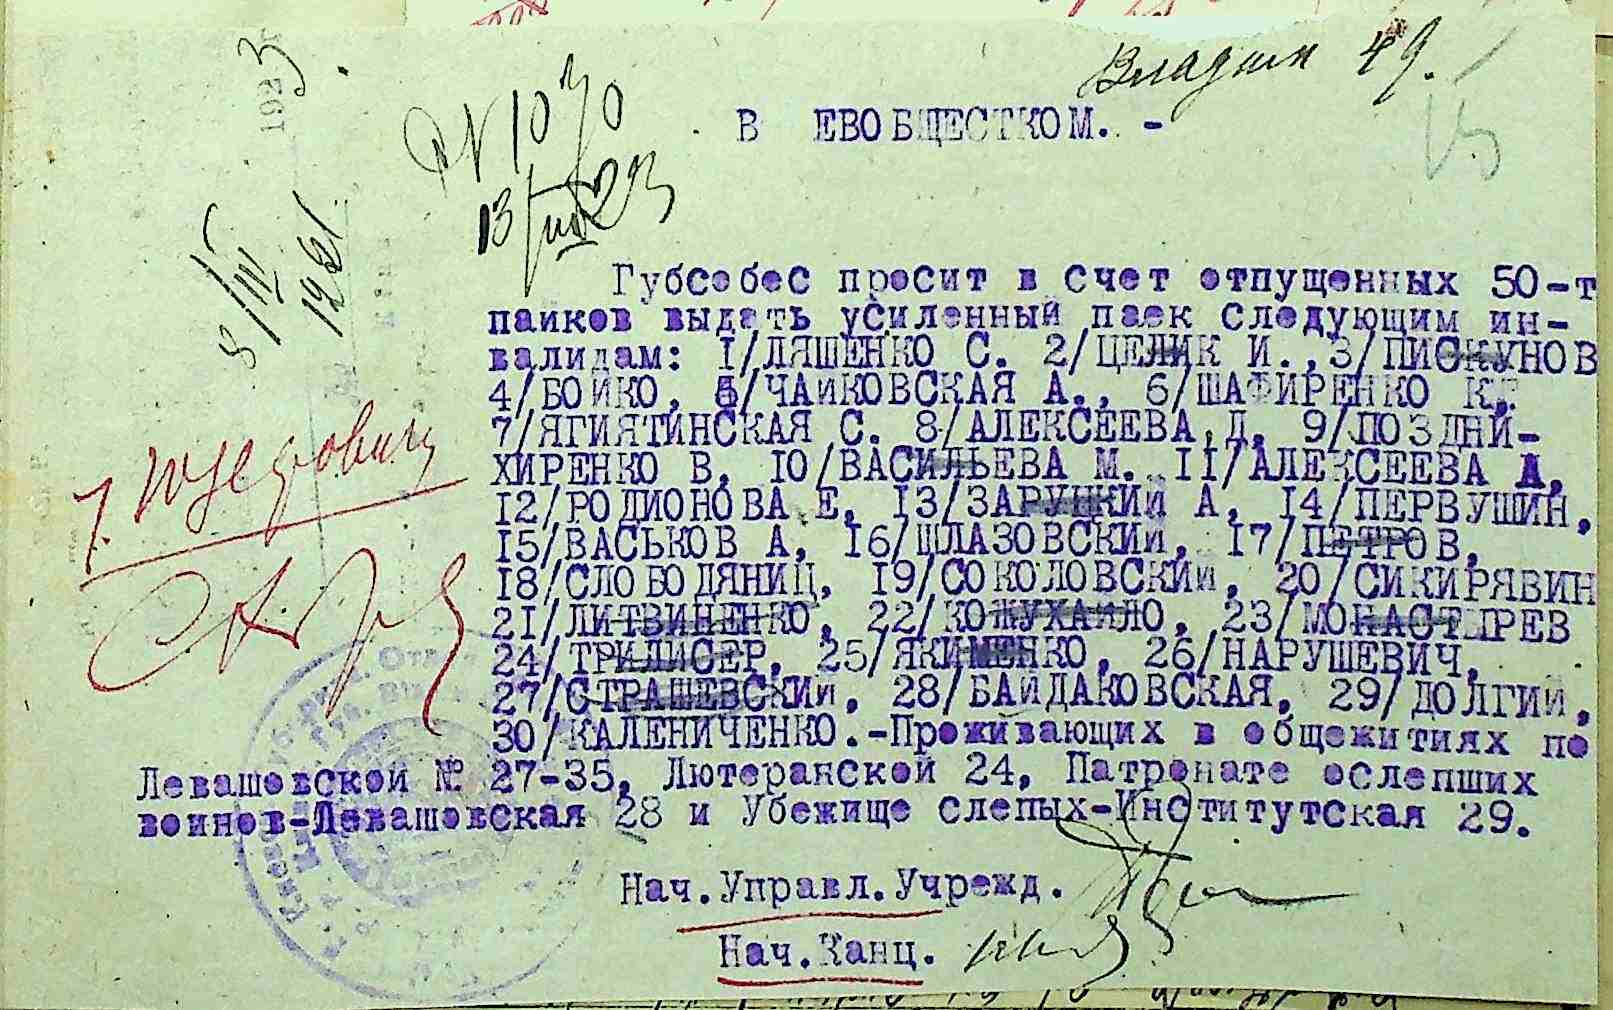 Владим 49.
1923
№ 1030
13/VIII 23
В ЕВОБЩЕСТКОМ. -
8/VIII
Губсобес просит в счет отпущенных 50-т
пайков выдать усиленный паек следующим ин-
валидам: I/ЛЯШЕНКО С. 2/ЦЕЛИК И.,3/ПИСКУНОВ
4/БОЙКО, 5/ЧАЙКОВСКАЯ А., 6/ШАФИРЕНКО К.
7/ЯГИЯТИНСКАЯ С. 8/АЛЕКСЕЕВА Д, 9/ПОЗДНИ-
ХИРЕНКО В, IO/ВАСИЛЬЕВА М. II/АЛЕКСЕЕВА А,
I2/РОДИОНОВА Е, I3/ЗАРУЦКИЙ А, I4/ПЕРВУШИН,
I5/ВАСЬКОВ А, I6/ШЛАЗОВСКИЙ, I7/ПЕТРОВ,
I8/СЛОБОДЯНИЦ, I9/СОКОЛОВСКИЙ, 20/СИКИРЯВИН
2I/ЛИТВИНЕНКО, 22/КОЖУХАЛО, 23/МОНАСТЫРЕВ
24/ТРИЛИСЕР, 25/ЯКИМЕНКО, 26/НАРУШЕВИЧ,
27/СТРАШЕВСКИЙ, 28/БАЙДАКОВСКАЯ, 29/ДОЛГИЙ,
30/КАЛЕНИЧЕНКО.-Проживающих в общежитиях по
Левашовской № 27-35, Лютеранской 24, Патронате ослепших
воинов-Левашовская 28 и Убежище слепых-Институтская 29.
Нач.Управл.Учрежд.
Нач.Канц.